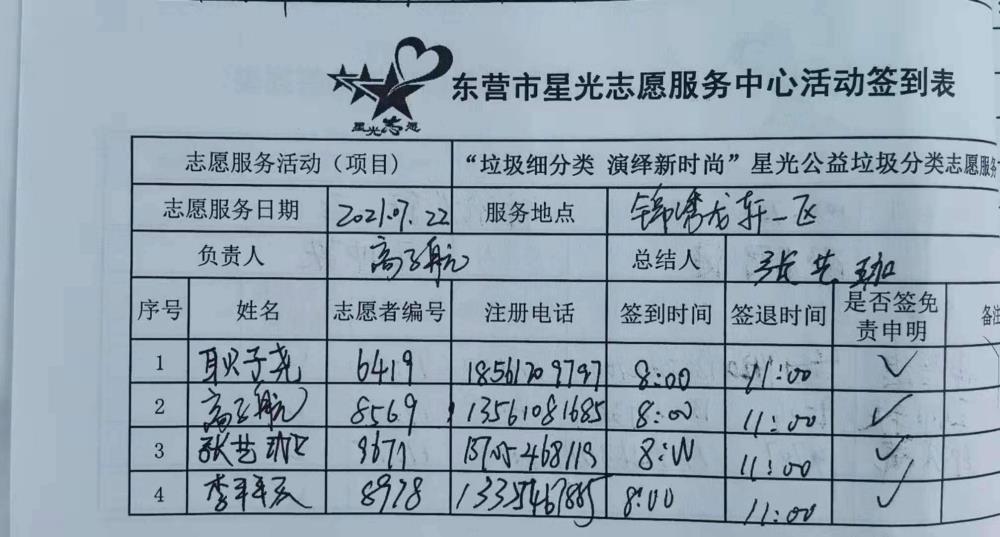 星光志愿
东营市星光志愿服务中心活动签到表
志愿服务活动（项目） “垃圾细分类 演绎新时尚”星光公益垃圾分类志愿服务
志愿服务日期 2021.07.22 服务地点 锦绣龙轩一区
负责人 高子航 总结人 张艺珈
序号 姓名 志愿者编号 注册电话 签到时间 签退时间 是否签免责申明 备注
1 耿子尧 6419 18561209797 8:00 11:00 ✓
2 高子航 8569 13561081685 8:00 11:00 ✓
3 张艺珈 9671 8:00 11:00 ✓
4 8978 8:00 11:00 ✓